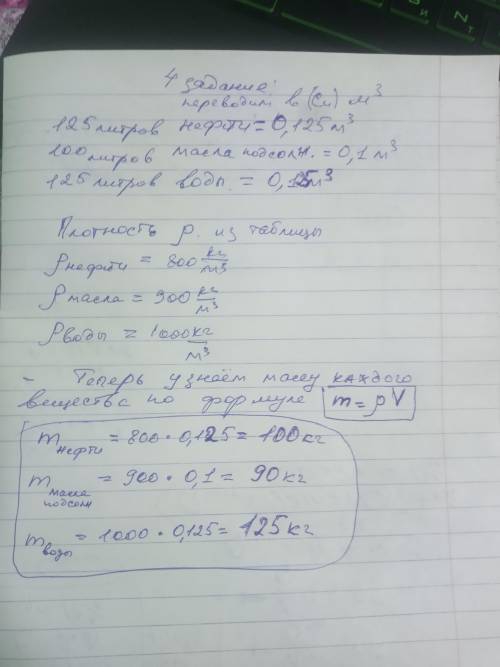 4 задание:
переводим в (Си) м³
125 литров нефти = 0,125 м³
100 литров масла подсолн. = 0,1 м³
125 литров воды = 0,125 м³
Плотность ρ. из таблицы
ρ нефти = 800 кг/м³
ρ масла = 900 кг/м³
ρ воды = 1000 кг/м³
- Теперь узнаём массу каждого
вещества по формуле m = ρV
m нефти = 800 · 0,125 = 100 кг
m масла подсолн = 900 · 0,1 = 90 кг
m воды = 1000 · 0,125 = 125 кг